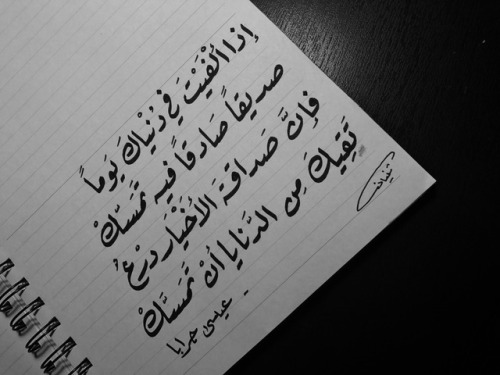 إذا ألفَيْتَ في دُنْيَاكَ يَوماً
صديقاً صَادقاً فيه تمَسَّكْ
فإنَّ صَداقةَ الأخْيَار درْعٌ
تَقِيكَ مِن الدَّنايا أنْ تَمَسَّكْ
- عيسى جرابا